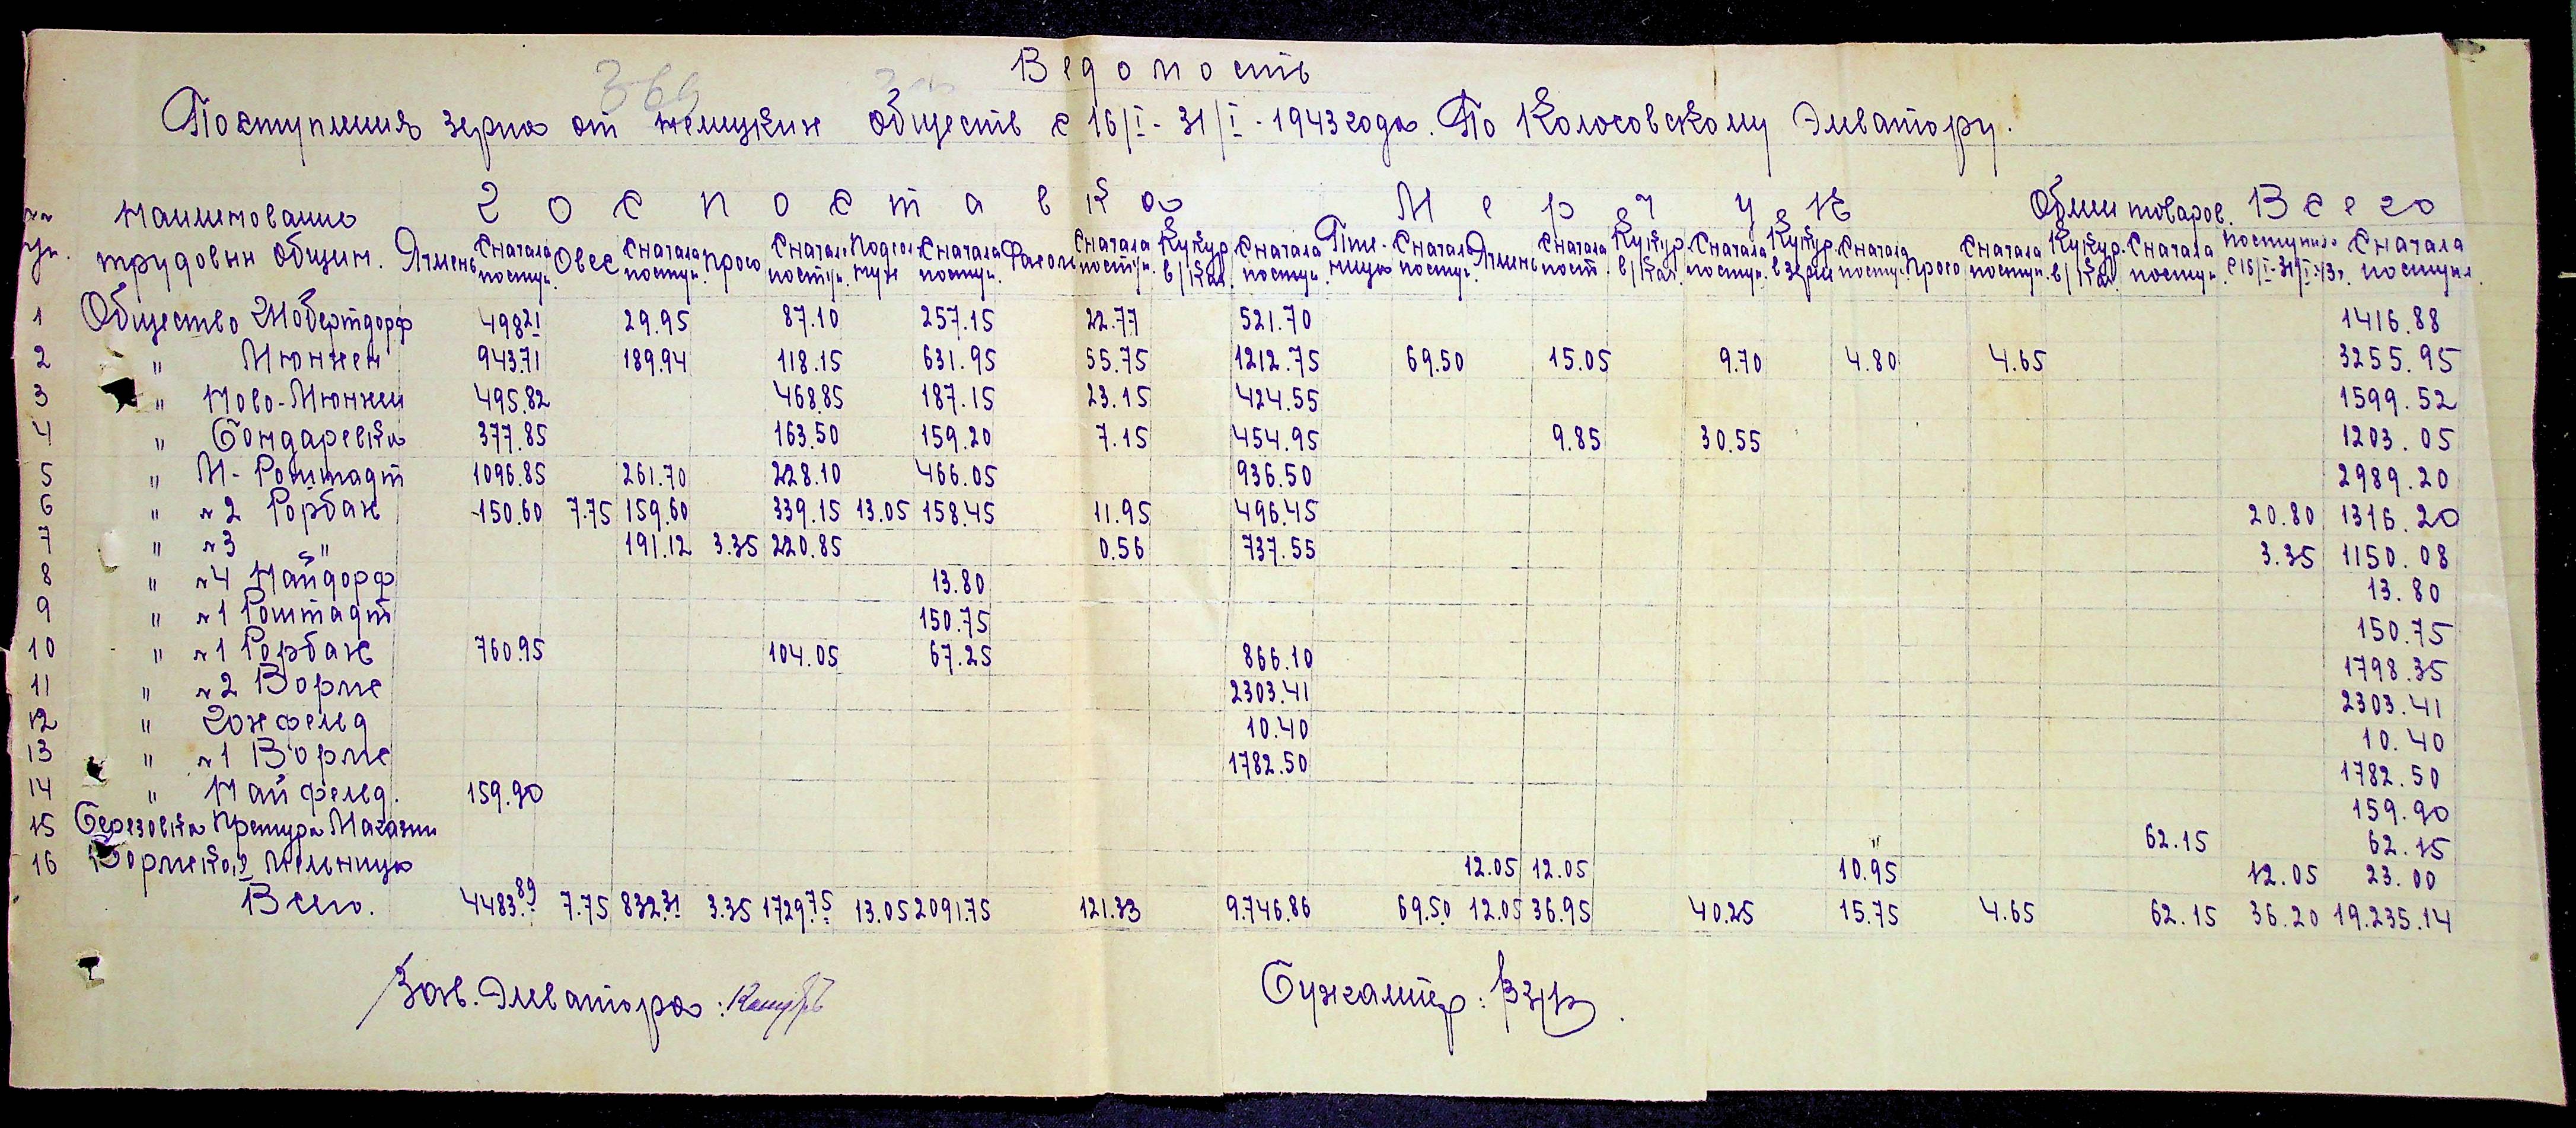 369
Ведомость
Поступления зерна от немецких обществ с 16/I - 31/I - 1943 года. По Колосовскому Элеватору.
Наименование Госпоставка Мерчук Обмен товаров. Всего
трудовых общин. Ячмень Сначала поступ. Овес Сначала поступ. Просо Сначала поступ. Подсолнух Сначала поступ. Фасоль Сначала поступ. Кукур. в/кач. Сначала поступ. Пшеница Сначала поступ. Ячмень Сначала пост. Кукур. в/кач. Сначала поступ. Кукур. в зерне Сначала поступ. Просо Сначала поступ. Кукур. в/кач. Сначала поступ. Поступило с 15/I-31/I-43г. Сначала поступл.
1 Общество Нобертдорф 498.21 29.95 87.10 257.15 22.77 521.70 1416.88
2 " Мюнхен 943.71 189.94 118.15 631.95 55.75 1212.75 69.50 15.05 9.70 4.80 4.65 3255.95
3 " Ново-Мюнхен 495.82 468.85 187.15 23.15 424.55 1599.52
4 " Бондаревка 377.85 163.50 159.20 7.15 454.95 9.85 30.55 1203.05
5 " М-Роштадт 1096.85 261.70 228.10 466.05 936.50 2989.20
6 " №2 Рорбах 150.60 7.75 159.60 339.15 13.05 158.45 11.95 496.45 20.80 1316.20
7 " №3 " 191.12 3.35 220.85 0.56 737.55 3.35 1150.08
8 " №4 Найдорф 13.80 13.80
9 " №1 Роштадт 150.75 150.75
10 " №1 Рорбах 760.95 104.05 67.25 866.10 1798.35
11 " №2 Вормс 2303.41 2303.41
12 " Гохфельд 10.40 10.40
13 " №1 Вормс 1782.50 1782.50
14 " Найфельд. 159.90 159.90
15 Березовка Претура Магазин 62.15 62.15
16 Вормская мельница 12.05 12.05 10.95 12.05 23.00
Всего. 4483.89 7.75 832.31 3.35 1729.75 13.05 2091.75 121.33 9.746.86 69.50 12.05 36.95 40.25 15.75 4.65 62.15 36.20 19.235.14
Зав. Элеватора: Бухгалтер: